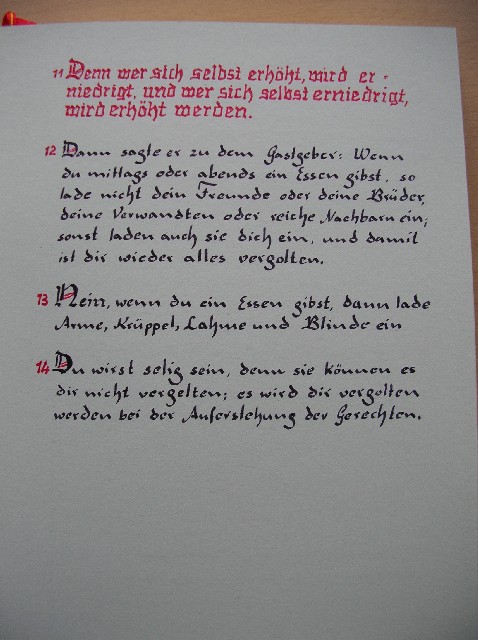 11 Denn wer sich selbst erhöht, wird er-
niedrigt, und wer sich selbst erniedrigt,
wird erhöht werden.
12 Dann sagte er zu dem Gastgeber: Wenn
du mittags oder abends ein Essen gibst, so
lade nicht dein Freunde oder deine Brüder,
deine Verwandten oder reiche Nachbarn ein;
sonst laden auch sie dich ein, und damit
ist dir wieder alles vergolten.
13 Nein, wenn du ein Essen gibst, dann lade
Arme, Krüppel, Lahme und Blinde ein
14 Du wirst selig sein, denn sie können es
dir nicht vergelten; es wird dir vergolten
werden bei der Auferstehung der Gerechten.